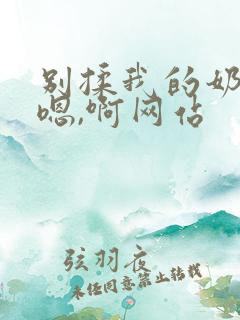 别揉我的奶
嗯,啊网站
弦羽夜
未经同意禁止转载